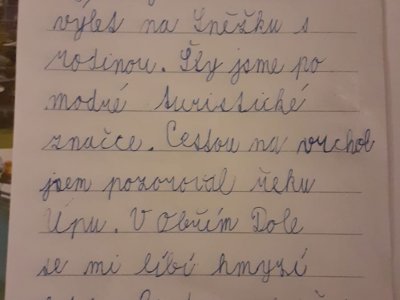 výlet na Sněžku s
rodinou. Šly jsme po
modré turistické
značce. Cestou na vrchol
jsem pozoroval řeku
Úpu. V Obřím Dole
se mi líbí hmyzí